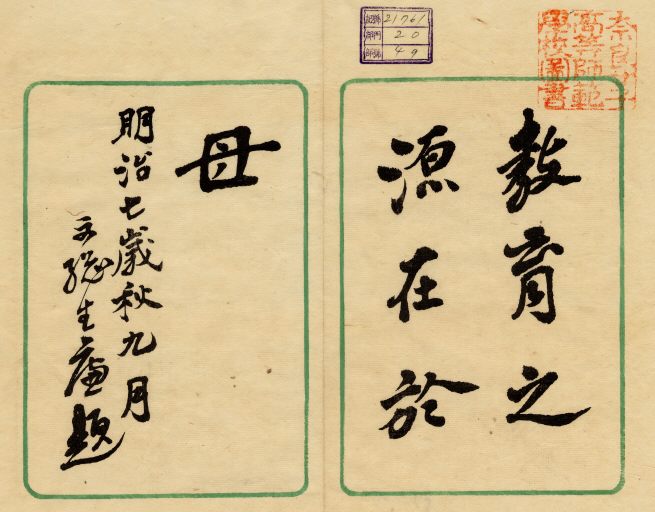 奈良女子
高等師範
學校圖書
21761
20
49
教育之
源在於
母
明治七歳秋九月
生 題